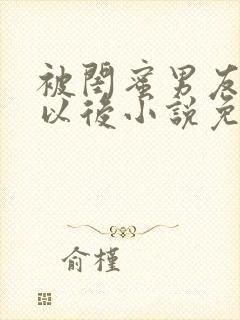 被閨蜜男友
以後小說免
俞槿